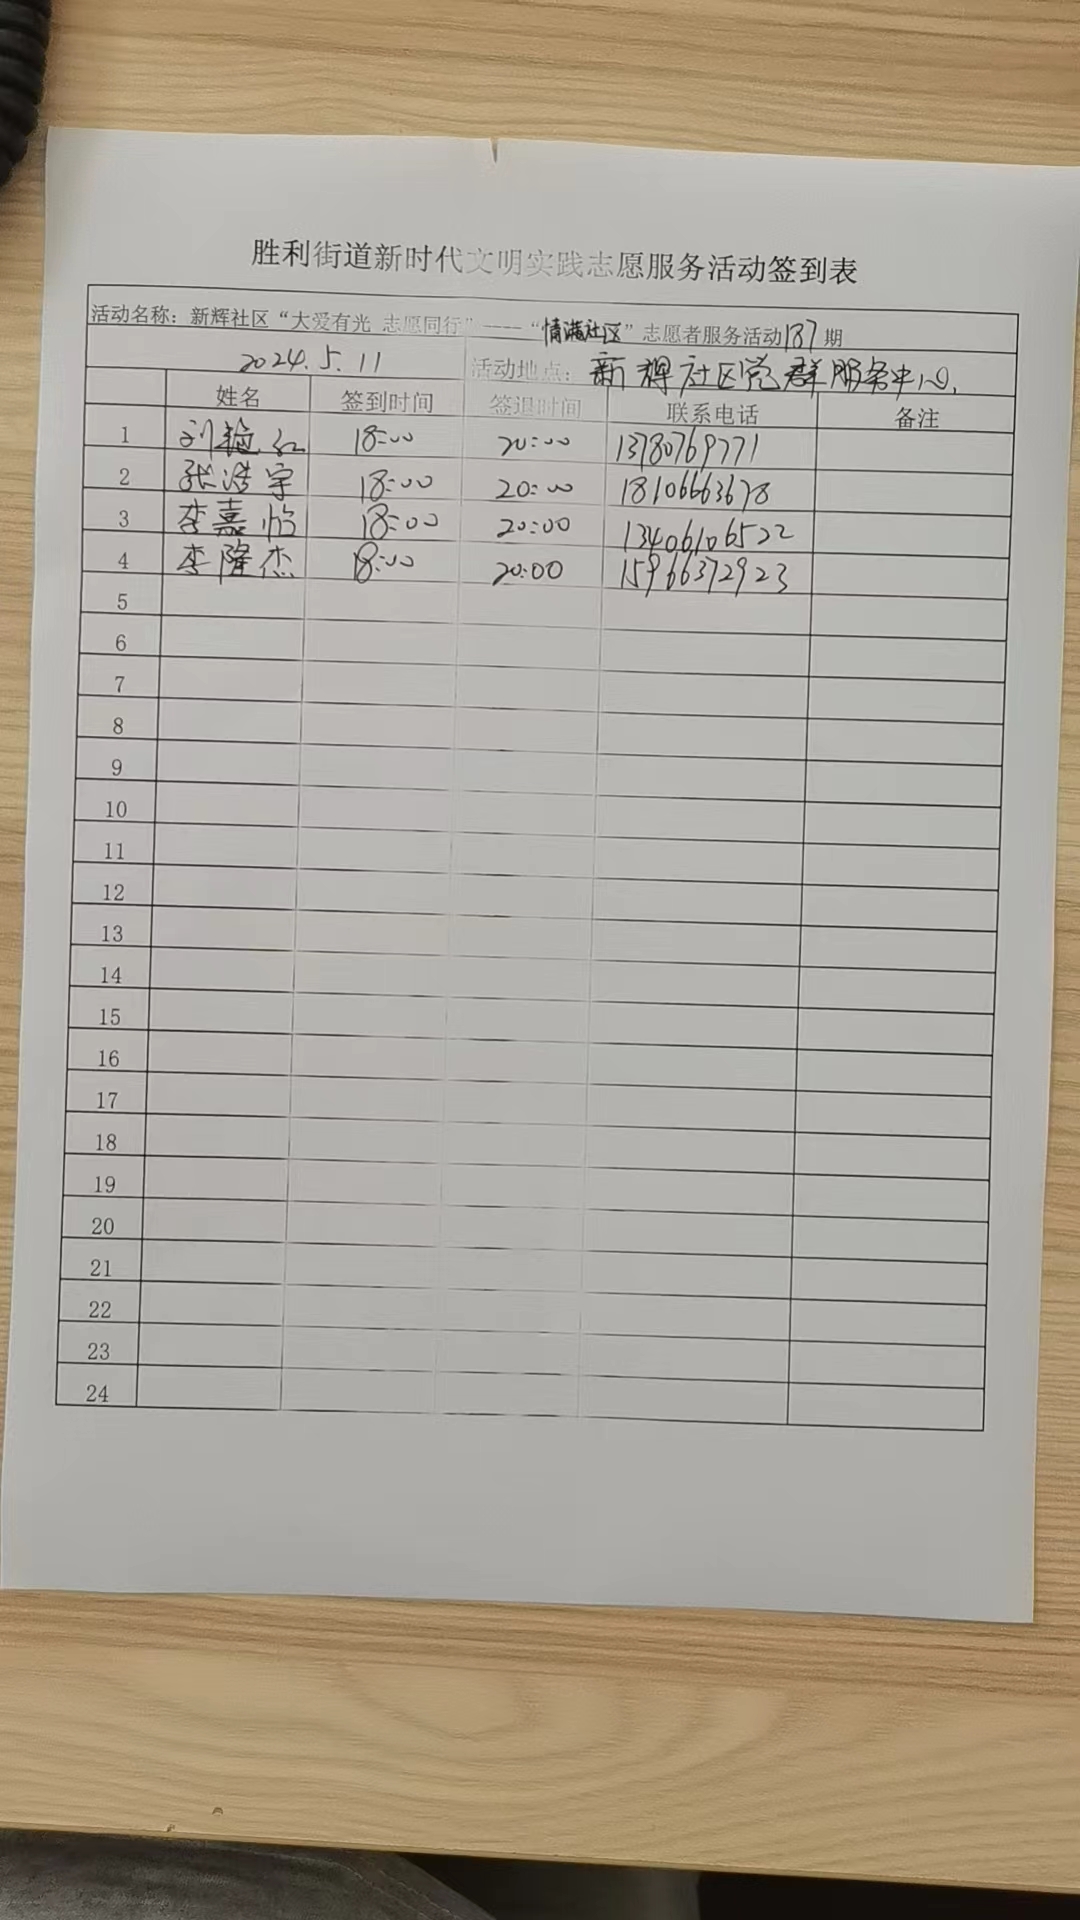 胜利街道新时代文明实践志愿服务活动签到表
活动名称：新辉社区“大爱有光 志愿同行”——“情满社区”志愿者服务活动187期
2024.5.11 活动地点：新辉社区党群服务中心.
姓名 签到时间 签退时间 联系电话 备注
1 刘艳红 18:00 20:00 13780769771
2 张浩宇 18:00 20:00 18106663678
3 李嘉怡 18:00 20:00 13406106522
4 李隆杰 18:00 20:00 15966372923
5
6
7
8
9
10
11
12
13
14
15
16
17
18
19
20
21
22
23
24